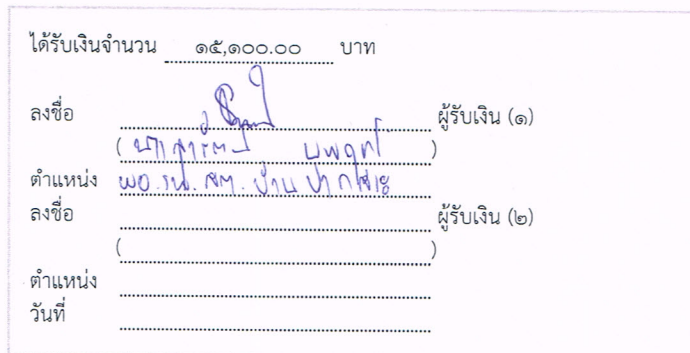 ได้รับเงินจำนวน ๑๕,๑๐๐.๐๐ บาท
ลงชื่อ ผู้รับเงิน (๑)
( )
ตำแหน่ง ผอ.รพ.สต. บ้าน
ลงชื่อ ผู้รับเงิน (๒)
( )
ตำแหน่ง
วันที่